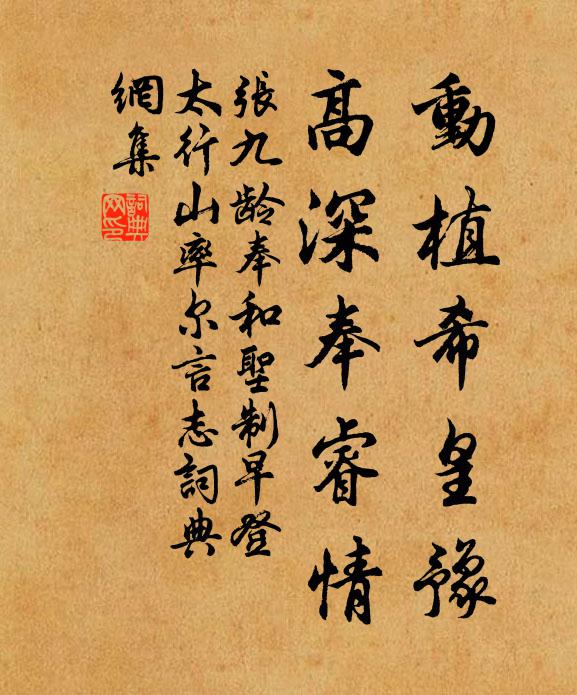 動植希皇豫
高深奉睿情
張九齡奉和聖制早登
太行山率尔言志詞典
網集
詞典
网印